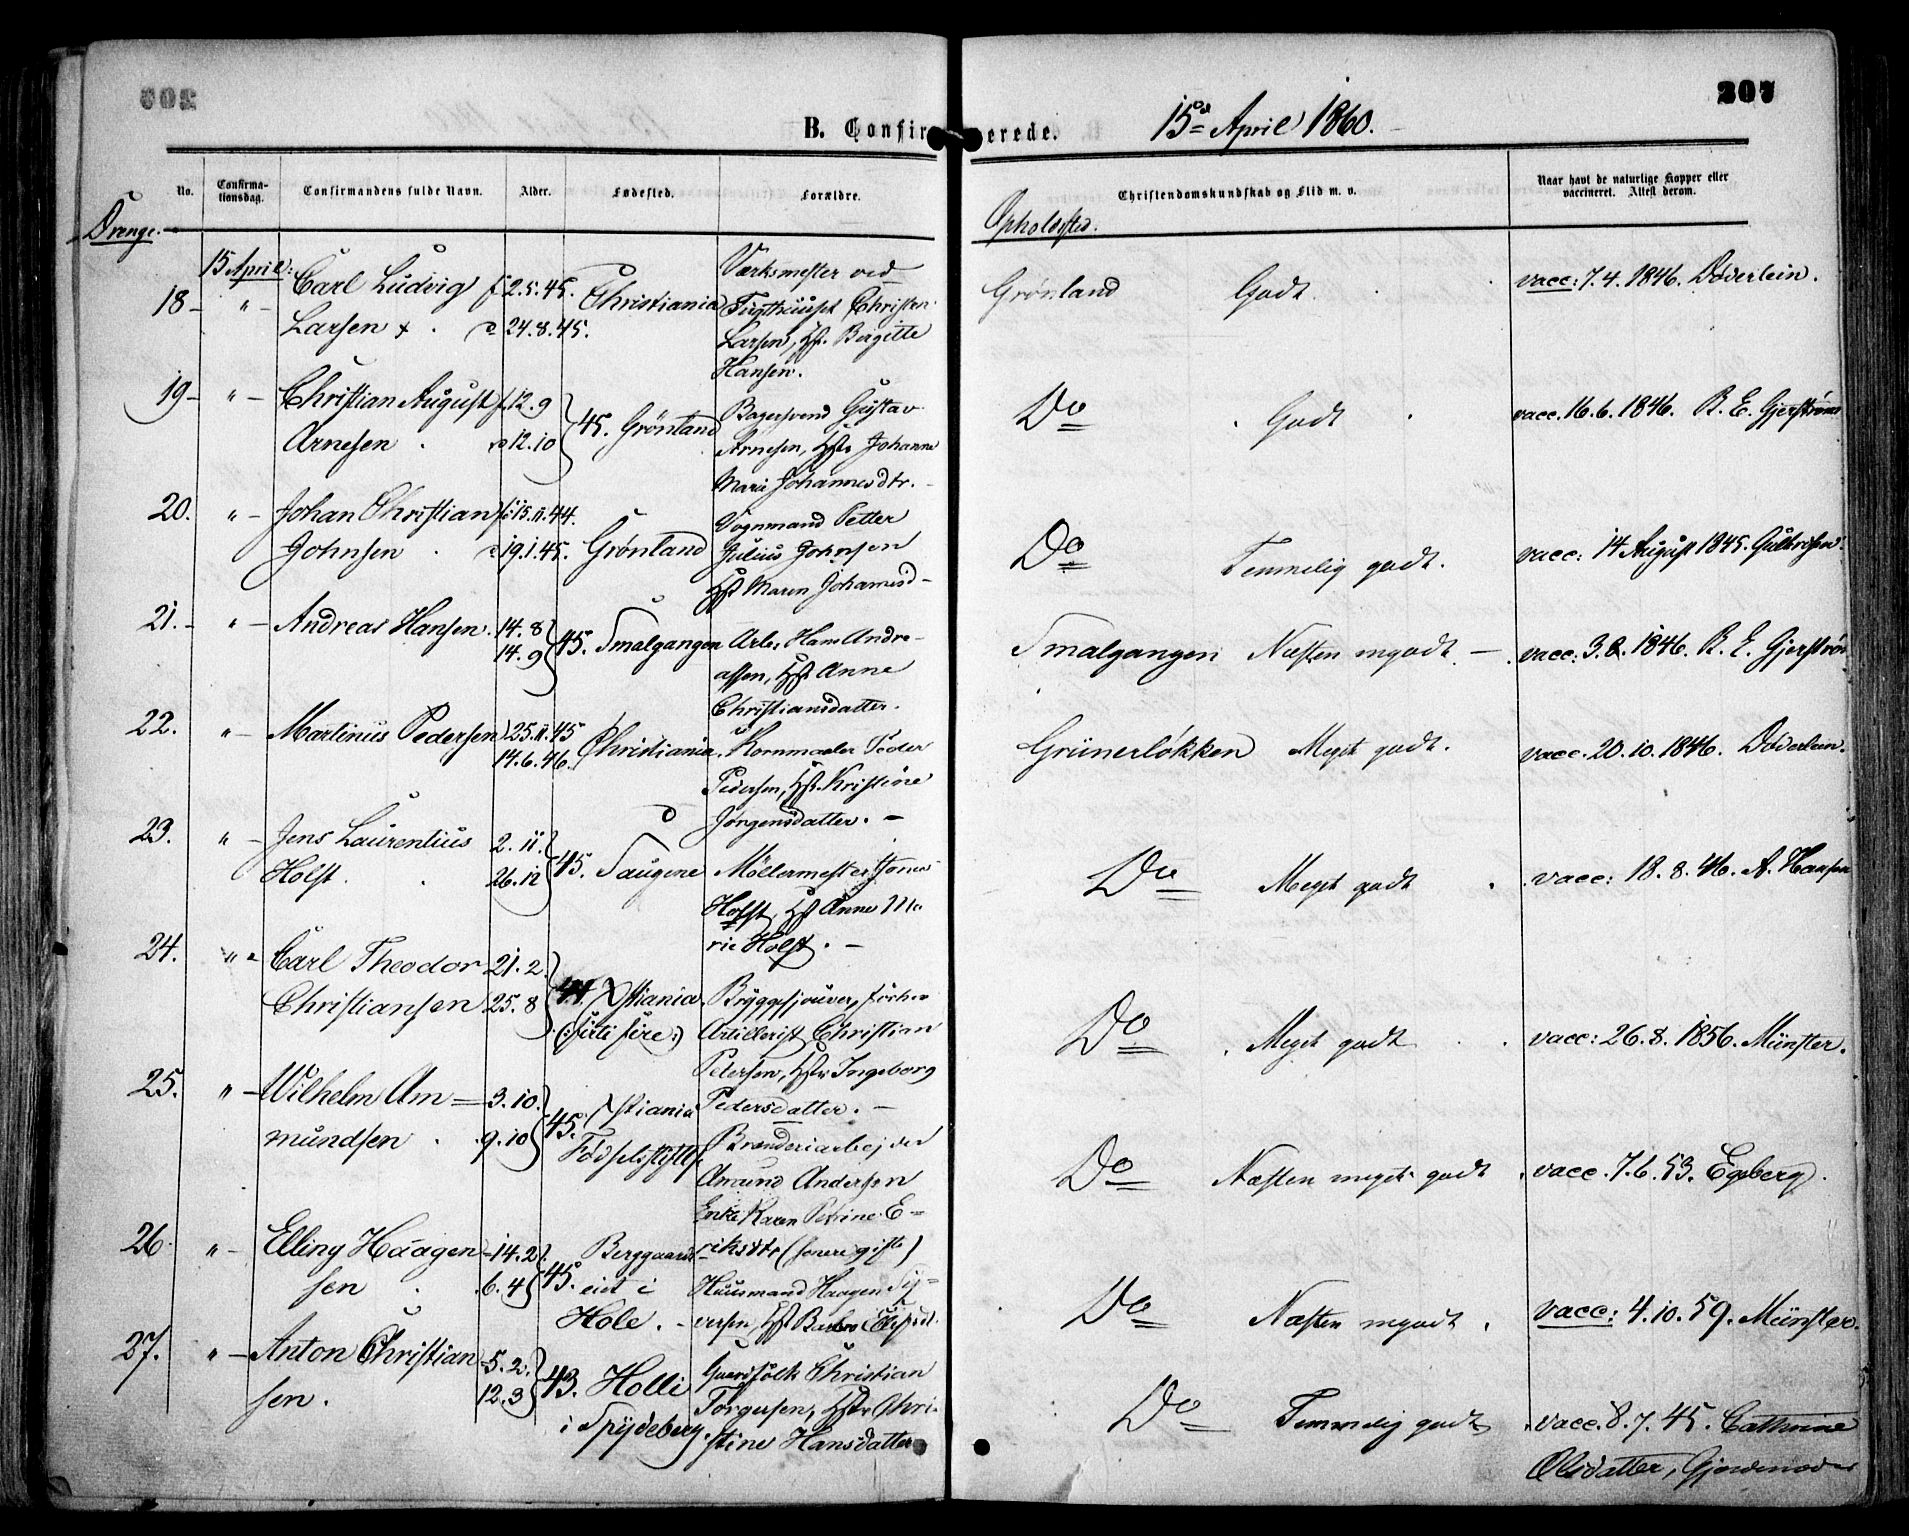 207
B. Confirmerede.
15de April 1860.
No.
Confirmationsdag.
Confirmandens fulde Navn.
Alder.
Fødested.
Forældre.
Christendomskundskab og Flid m. v.
Naar havt de naturlige Kopper eller
vaccineret. Attest derom.
Drenge.
Opholdssted.
15 April:
18 " Carl Ludvig f. 2.5.45. Christiania Værksmester ved Grønland Godt. vacc: 7.4.1846. Døderlein.
Larsen d 24.8.45. Tugthuust Christen
Larsen, Hst. Birgitte
Hansen.
19 " Christian August f. 12.9 45. Grønland Bagersvend Gustav Do Godt vacc. 16.6.1846. R. E. Gjerstrøm
Arnesen d 12.10 Arnesen, Hst Johanne
Marie Johannesdtr.
20. " Johan Christian f. 15.11.44. Vognmand Petter Do Temmelig godt. vacc: 14 August 1845. Gulbrisen
Johnsen d 19.1.45. Grønland Julius Johnsen
Hst Maren Johannesd
21. " Andreas Hansen. 14.8 45. Smalgangen Arb. Hans Andre- Smalgangen Næsten mgodt vacc: 3.8.1846. R. E. Gjerstrøm
14.9 assen, Hst Anne
Christiansdatter.
22. " Martinus Pedersen 25.11.45 Christiania. Kornmaaler Peder Grünerløkken Meget godt. vacc. 20.10.1846. Døderlein.
14.6.46. Pedersen, Hst. Kristine
Jørgensdatter.
23. " Jens Laurentius 2.11. 45. Saugene Møllermester Do Meget godt vacc: 18.8.46. A. Hansen
Holst. 26.12 Holst, Hst Anne Ma
rie Holst.
24. " Carl Theodor 21.2. 44. Xstiania. Bryggesjouer, forhen Do Meget godt vacc: 26.8.1856. Münster.
Christiansen 25.8 (: fire :) Artillerist Christian
Petersen, Hst Ingeborg
Pedersdatter.
25. " Wilhelm Am= 3.10. 45. Xstiania Brænderiarbejder Do Næsten meget godt vacc. 7.6.53. Egeberg.
mundsen 9.10 Fødselsstift. Amund Andersen
Enke Karen Petrine E=
riksdtr (senere gift)
26 " Elling Haagen 14.2 45. Berggaards Huusmand Haagen Sy= Do Næsten mgodt. vacc: 4.10.59. Münster.
sen 6.4 eiet i Hole. versen, Hst
27. " Anton Christian 5.2. 43. Holli Gaardfolk Christian Do Temmelig godt vacc. 8.7.45. Cathrine
sen. 12.3 i Spydeberg. Torgersen, Hst Chri-
stine Hansdatter Olsdatter, Gjordemoder